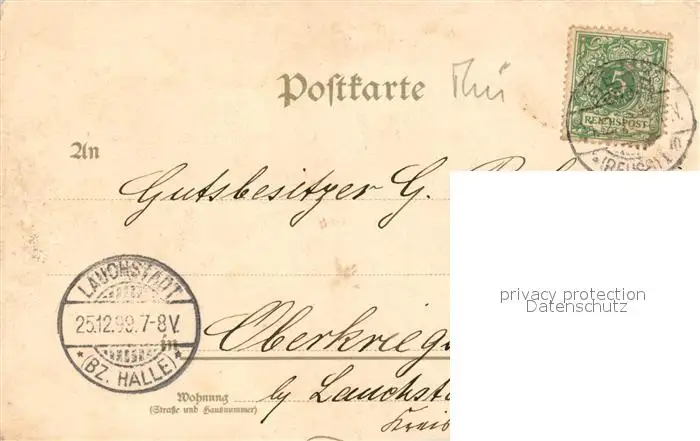 Postkarte
5
REICHSPOST
(REUSS)
An
Gutsbesitzer G.
privacy protection
Datenschutz
LAUCHSTÄDT
25.12.99.7-8V.
* (BZ. HALLE) *
in
Oberkrieg
Wohnung
(Straße und Hausnummer)
by Lauchst
Kreis